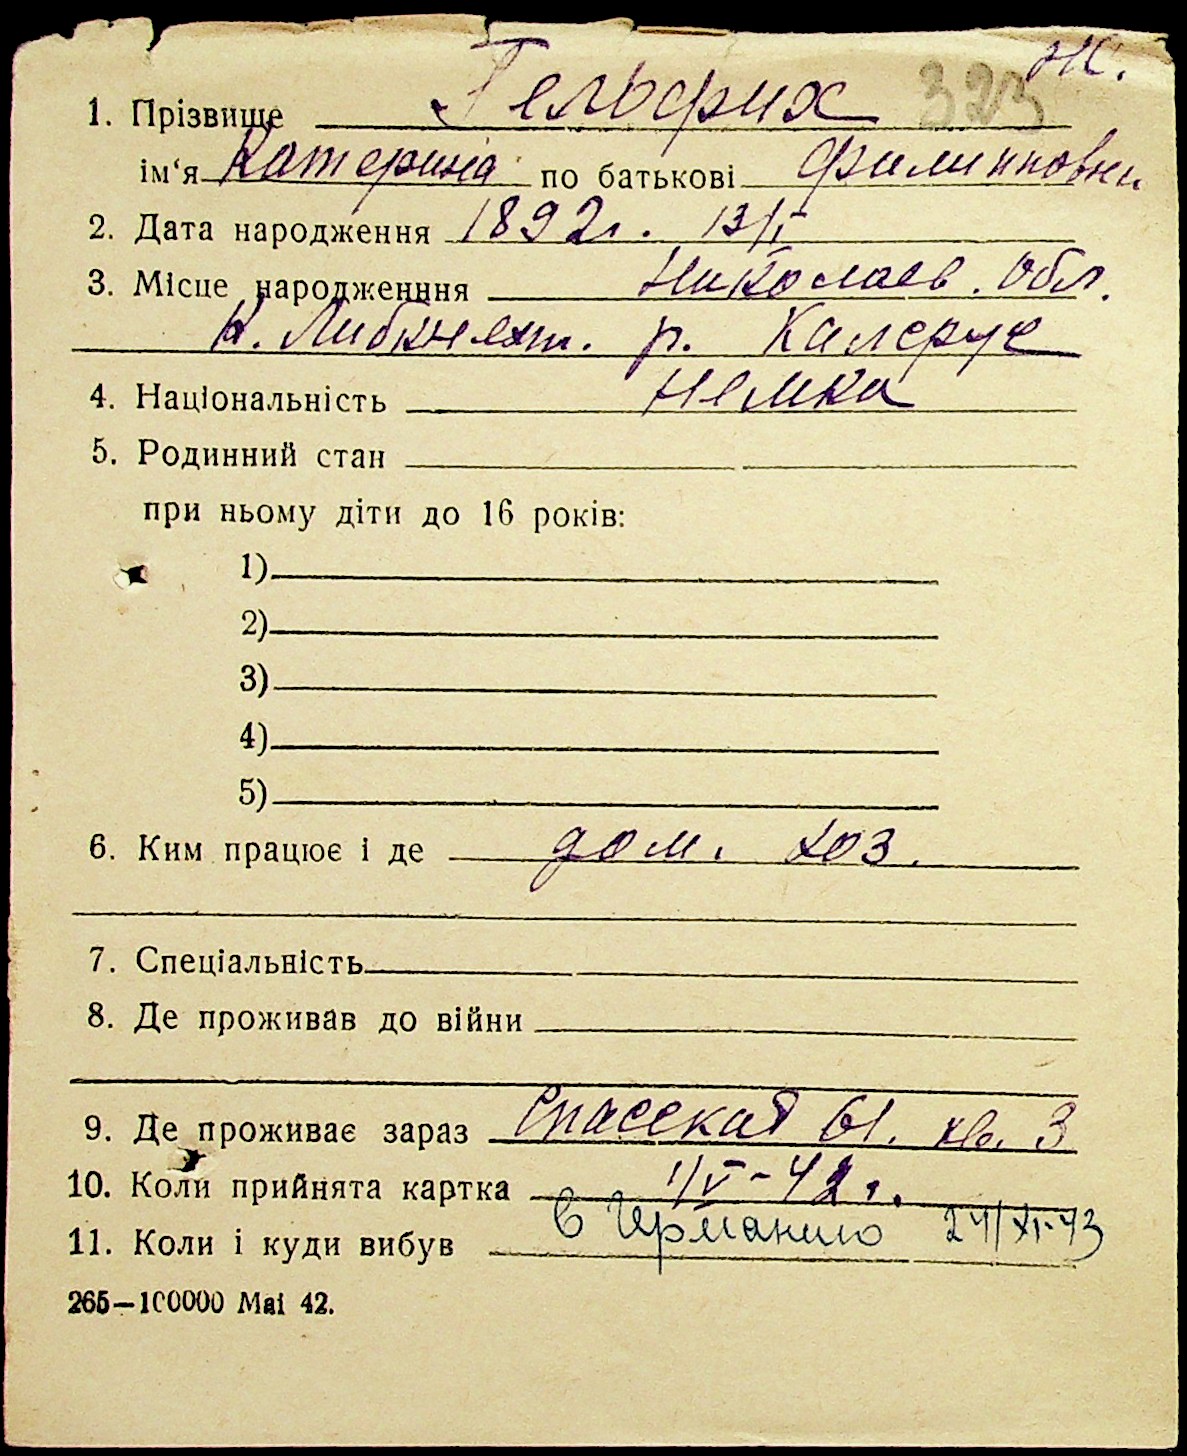 Ж.
323
1. Прізвище Гельфрих
ім‘я Катерина по батькові Филипповна
2. Дата народження 1892г. 13/I
3. Місце народженння Николаев. обл.
К. Либкнехт. р. Калеруе
4. Національність немка
5. Родинний стан
при ньому діти до 16 років:
1)
2)
3)
4)
5)
6. Ким працює і де дом. хоз.
7. Спеціальність
8. Де проживав до війни
9. Де проживає зараз Спасская 61. кв. 3
10. Коли прийнята картка 1/V-42г.
11. Коли і куди вибув в Германию 24/XI-43
265—100000 Mai 42.